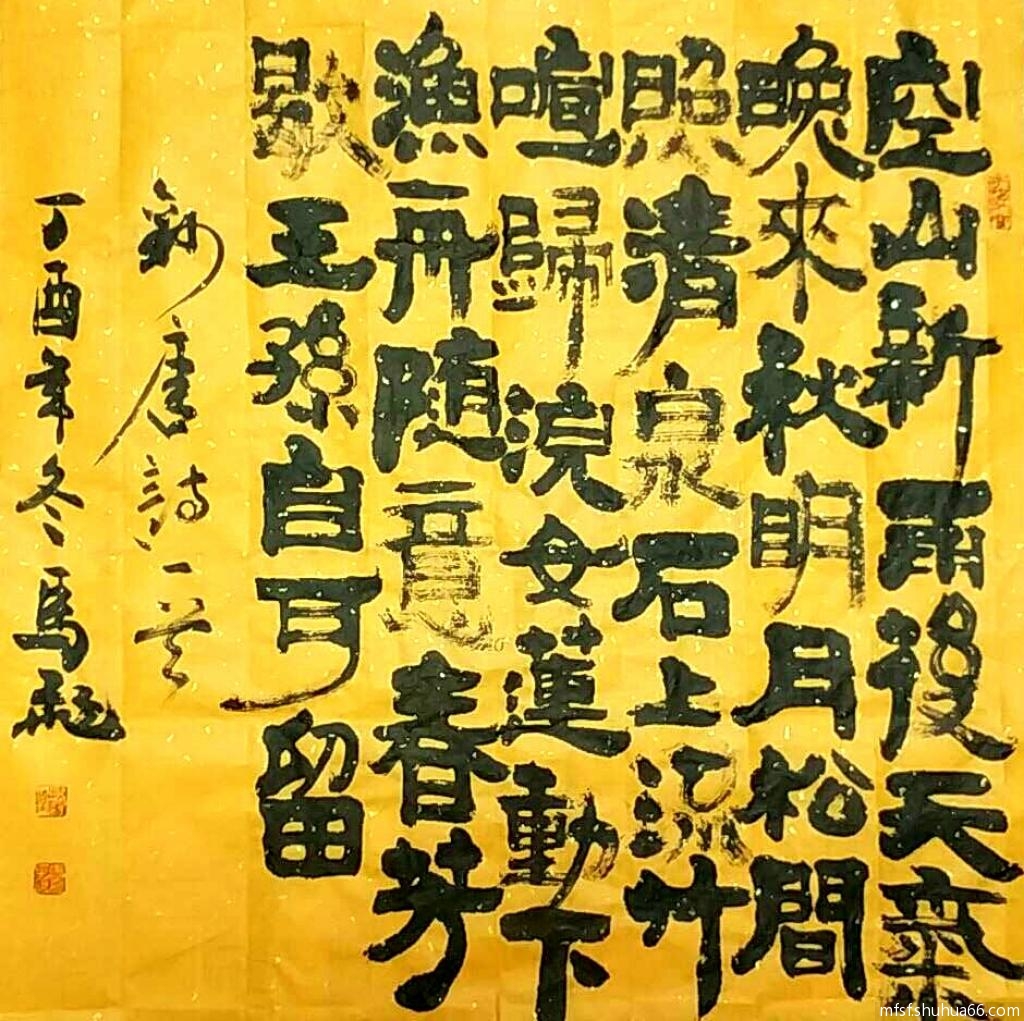 空山新雨後天氣
晚來秋明月松間
照清泉石上流竹
喧歸浣女蓮動下
漁舟随意春芳
歇王孫自可留
錄唐詩一首
丁酉年冬馬
mfsf.shuhua66.com